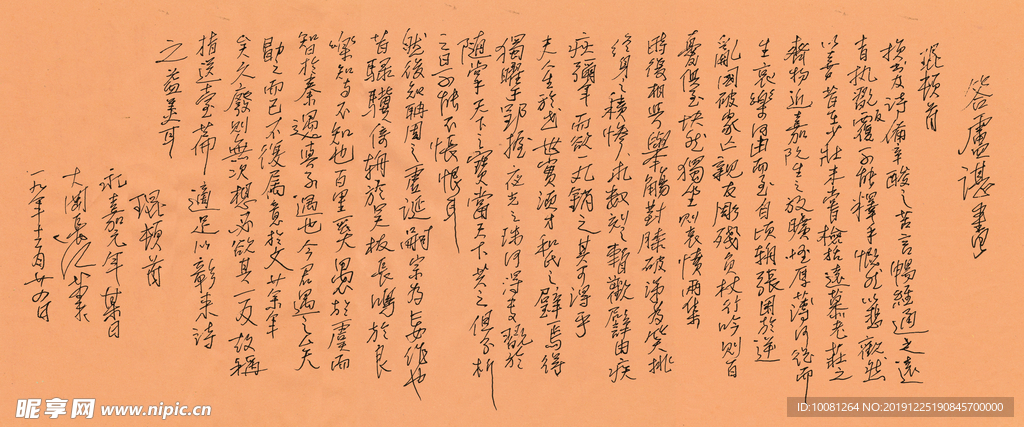 答盧諶書
琨頓首
損書及詩備辛酸之苦言暢經通之遠
旨執翫反覆不能釋手慨然以悲歡然
以喜昔在少壯未嘗檢括遠慕老莊之
齊物近嘉阮生之放曠怪厚薄何從而
生哀樂何由而至自頃輈張困於逆
亂國破家亡親友彫殘負杖行吟則百
憂俱至块然獨坐則哀憤兩集
時復相與舉觴對膝破涕為笑排
終身之積慘求數刻之暫歡譬由疾
疢彌年而欲一丸銷之其可得乎
夫才生於世世實須才和氏之璧焉得
獨曜於郢握夜光之珠何得專翫於
隨掌天下之寶當天下共之但分析
之日不能不悵恨耳
然後知聃周之虛誕嗣宗為妄作也
昔騄驥倚輈於吳坂長鳴於良
樂知与不知也百里奚愚於虞而
智於秦遇與不遇也今君遇之矣
勖之而已不復屬意於文廿余年
矣久廢則無次想必欲其一反故稱
指送壹篇適足以彰來詩
之益美耳
琨頓首
永嘉元年某日